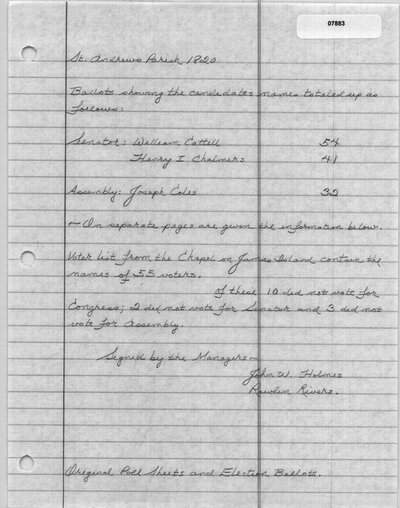 07883
St. Andrews Parish 1820
Ballots showing the candidates names totaled up as
follows:
Senator: William Cattell 54
Henry I Chalmers 41
Assembly: Joseph Coles 32
~ On separate pages are given the information below.
Voter list from the Chapel on James Island contain the
names of 55 voters.
Of these 10 did not vote for
Congress; 2 did not vote for Senator and 3 did not
vote for Assembly.
Signed by the Managers ~
John W. Holmes
Rawlin Rivers.
Original Poll Sheets and Election Ballots.